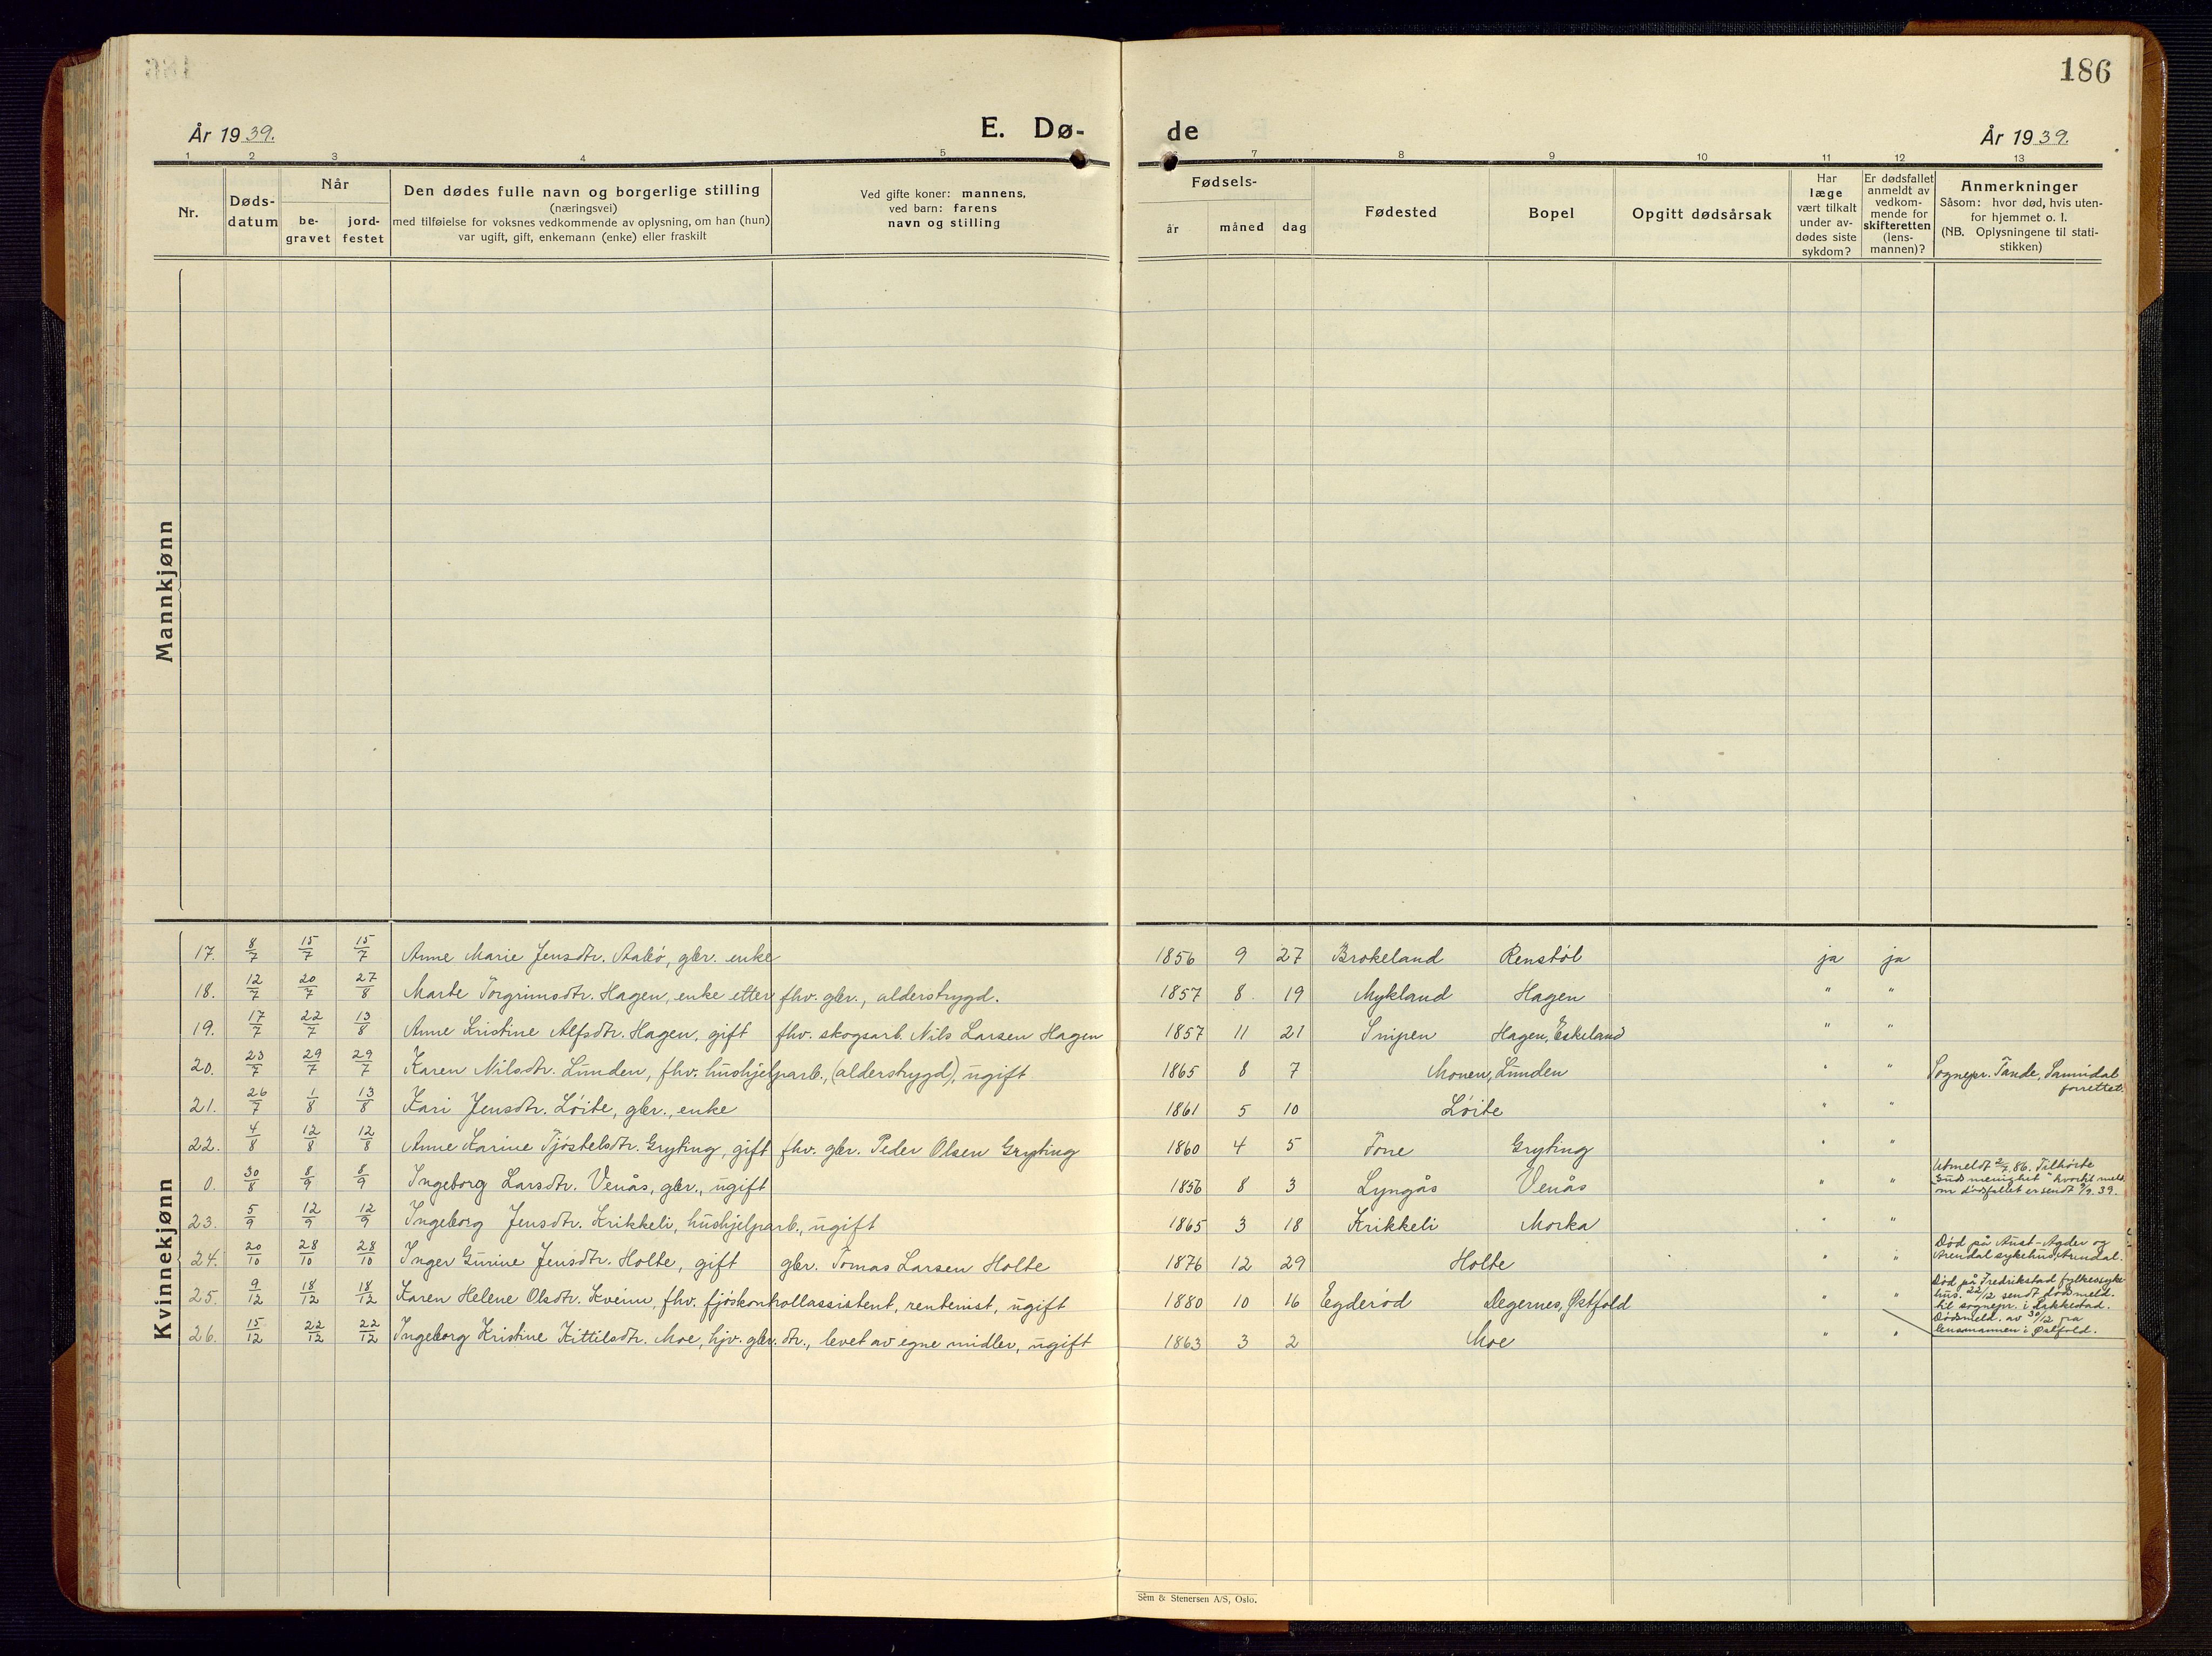 186
År 1939.
E. Dø-
de
År 1939.
1 2 3 4 5
7 8 9 10 11 12 13
Nr.
Døds-
datum
Når
be-
gravet
jord-
festet
Den dødes fulle navn og borgerlige stilling
(næringsvei)
med tilføielse for voksnes vedkommende av oplysning, om han (hun)
var ugift, gift, enkemann (enke) eller fraskilt
Ved gifte koner: mannens,
ved barn: farens
navn og stilling
Fødsels-
år måned dag
Fødested
Bopel
Opgitt dødsårsak
Har
læge
vært tilkalt
under av-
dødes siste
sykdom?
Er dødsfallet
anmeldt av
vedkom-
mende for
skifteretten
(lens-
mannen)?
Anmerkninger
Såsom: hvor død, hvis uten-
for hjemmet o. l.
(NB. Oplysningene til stati-
stikken)
Mannkjønn
Kvinnekjønn
17. 8/7 15/7 15/7 Anne Marie Jensdtr. Aabø, gbr. enke 1856 9 27 Brokeland Renstøl ja ja
18. 12/7 20/7 27/8 Marte Torgrimsdtr. Hagen, enke etter fhv. gbr., alderstrygd. 1857 8 19 Mykland Hagen " "
19. 17/7 22/7 13/8 Anne Kristine Alfsdtr. Hagen, gift fhv. skogsarb. Nils Larsen Hagen 1857 11 21 Snipen Hagen, Eskeland " "
20. 23/7 29/7 29/7 Karen Nilsdtr. Lunden, fhv. hushjelparb., (alderstrygd), ugift 1865 8 7 Monen, Lunden " " Sognepr. Tande, Sannidal
forrettet.
21. 26/7 1/8 13/8 Kari Jensdtr. Løite, gbr., enke 1861 5 10 Løite " "
22. 4/8 12/8 12/8 Anne Karine Tjøstelsdtr. Gryting, gift fhv. gbr. Peder Olsen Gryting 1860 4 5 Tone Gryting " "
0. 30/8 8/9 8/9 Ingeborg Larsdtr. Venås, gbr., ugift 1856 8 3 Lyngås Venås " " Utmeldt 2/7.86. Tilhørte
"Guds menighet" hvortil meld.
om dødsfallet er sendt 9/9.39.
23. 5/9 12/9 12/9 Ingeborg Jensdtr. Krikkeli, hushjelparb., ugift 1865 3 18 Krikkeli Morka " "
24. 20/10 28/10 28/10 Inger Gurine Jensdtr. Holte, gift gbr. Tomas Larsen Holte 1876 12 29 Holte " " Død på Aust-Agder og
Arendal sykehus, Arendal.
25. 9/12 18/12 18/12 Karen Helene Olsdtr. Kveim, fhv. fjøskontrollassistent, rentenist, ugift 1880 10 16 Egderød Degernes, Østfold " " Død på Fredrikstad fylkessyke
hus. 22/12 sendt dødsmeld.
til sognepr. i Rakkestad.
Dødsmeld. av 30/12 fra
lensmannen i Østfold.
26. 15/12 22/12 22/12 Ingeborg Kristine Kittilsdtr. Moe, hjv. gbr. dtr., levet av egne midler, ugift 1863 3 2 Moe " "
Sèm & Stenersen A/S, Oslo.